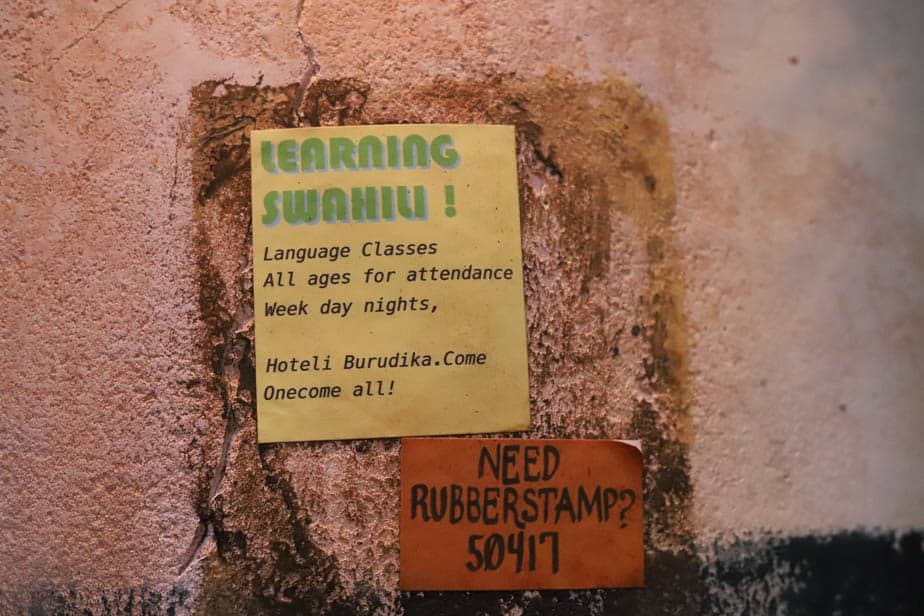 LEARNING
SWAHILI !
Language Classes
All ages for attendance
Week day nights,
Hoteli Burudika.Come
Onecome all!
NEED
RUBBERSTAMP?
50417